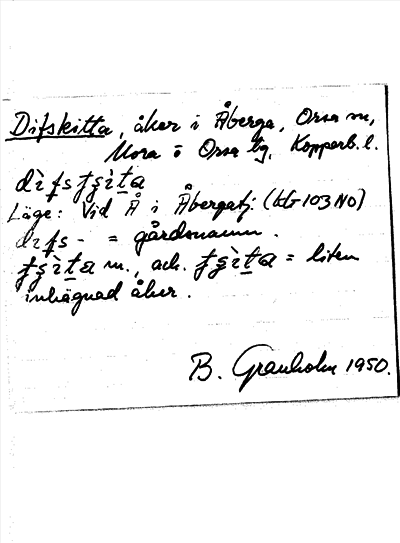 Difskitta, åker i Åberga, Orsa sn,
Mora o Orsa tg, Kopparb. l.
dìfsʂìta
Läge: Vid Å i Åbergatj. (LG 103 NO)
difs- = gårdsnamn.
m., ack. = liten
inhägnad åker.
B. Granholm 1950.